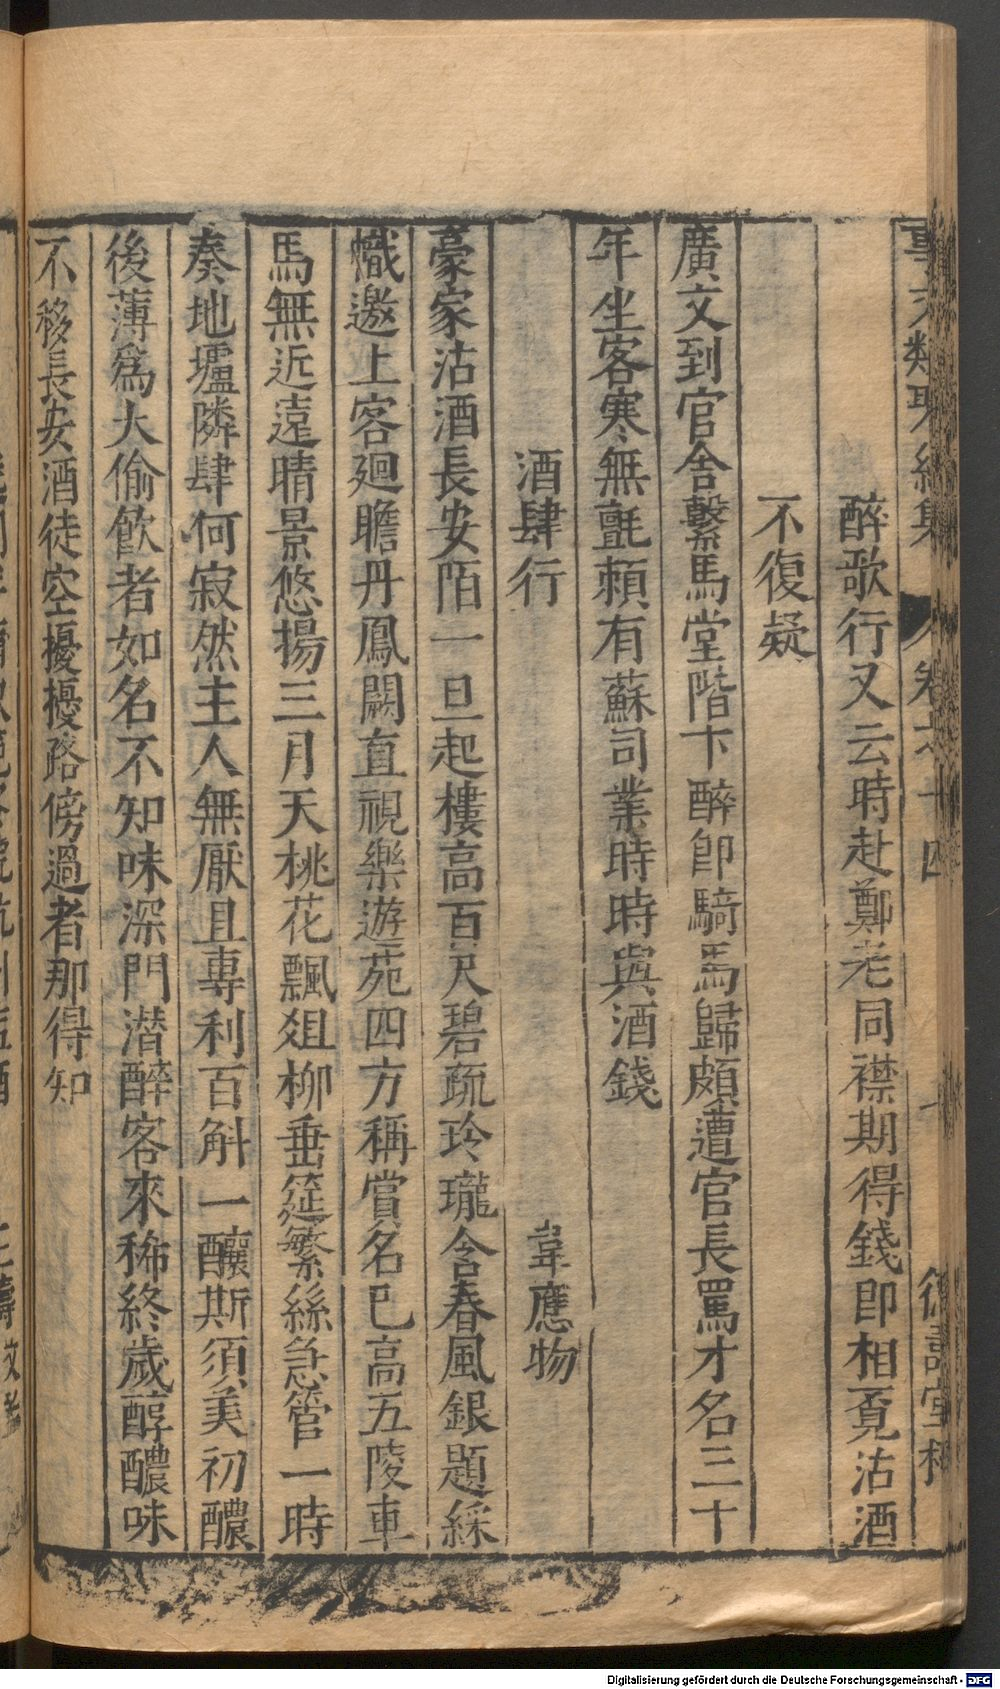 醉歌行又云時赴鄭老同襟期得錢即相覔沽酒
不復疑
廣文到官舍繫馬堂階下醉即騎馬歸頗遭官長罵才名三十
年坐客寒無氈頼有蘇司業時時與酒錢
酒肆行 韋應物
豪家沽酒長安陌一旦起樓高百尺碧疏玲瓏含春風銀題綵
幟邀上客廻瞻丹鳳闕直視樂遊苑四方稱賞名已高五陵車
馬無近遠晴景悠揚三月天桃花飄俎柳垂筵繁絲急管一時
奏地壚隣肆何寂然主人無厭且專利百斛一釀斯須美初醲
後薄爲大偷飲者如名不知味深門潜醉客來稀終歲醇醲味
不移長安酒徒空擾擾路傍過者那得知
Digitalisierung gefördert durch die Deutsche Forschungsgemeinschaft - DFG